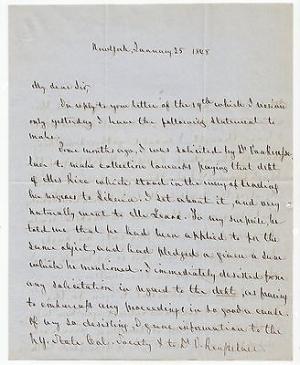 New York, January 25 1848
My dear Sir,
In reply to your letter of the 19th which I received
only yesterday I have the following statement to
make.
Some months ago, I was solicited by Dr
to make collection towards paying that debt
of Miss Rice which stood in the way of
his negroes to Liberia. I set about it, and very
naturally went to Mr. To my surprise, he
told me that he had been applied to for the
same object, and had pledged a given a sum
which he mentioned. I immediately desisted from
any solicitation in regard to the debt, as fearing
to embarrass any proceedings in so good a cause.
Of my so desisting, I gave information to the
N.Y. State Col. Society & to Dr